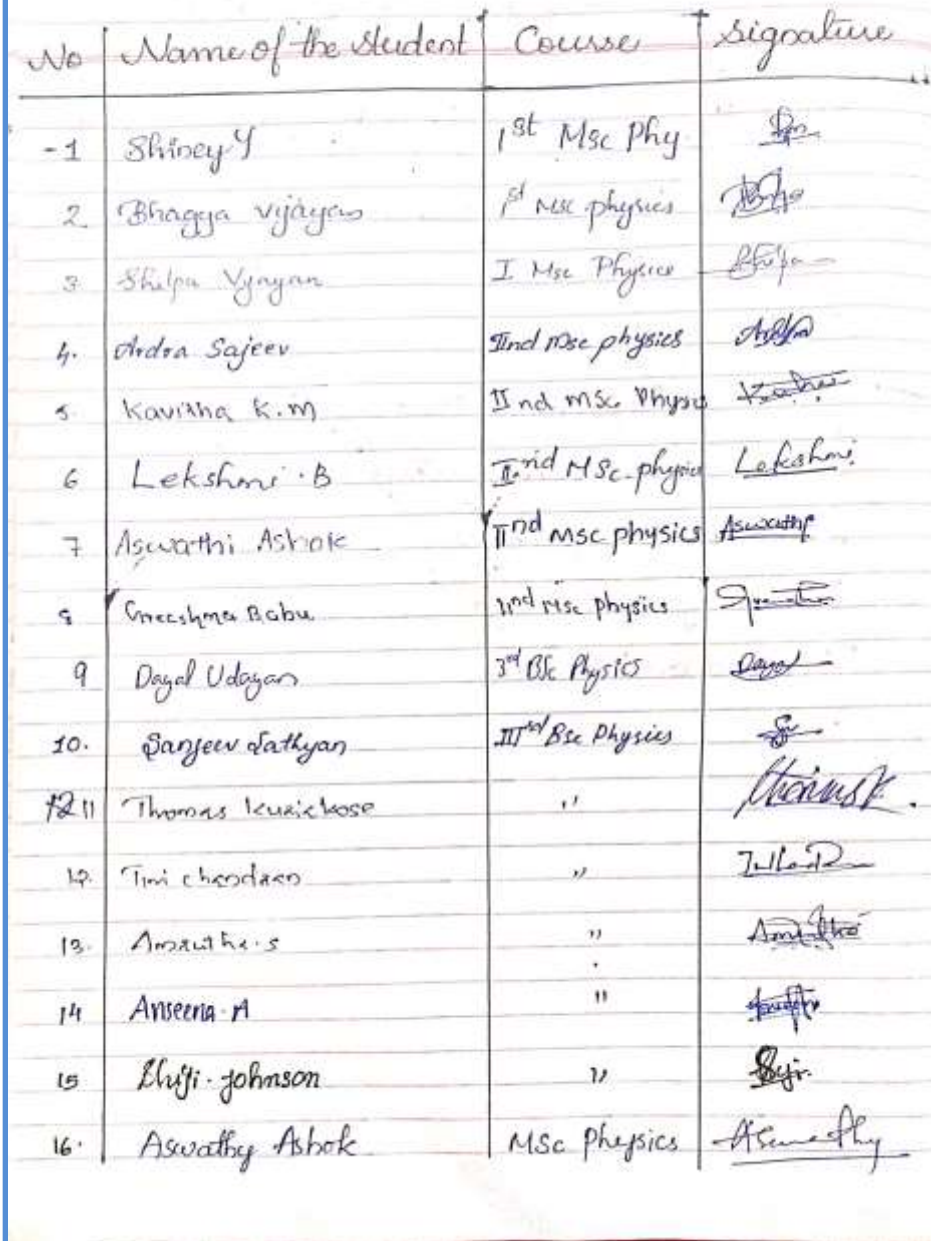 No Name of the student Course Signature
-1 Shiney Y 1st Msc Phy
2 Bhagya Vijayan 1st Msc physics
3 Shilpa Vijayan I Msc Physics Shilpa
4. Ardra Sajeev IInd Msc physics
5. Kavitha K.M IInd MSc Physics
6 Lekshmi. B IInd MSc physics Lekshmi
7 Aswathi Ashok IInd Msc physics Aswathy
8 Greeshma Babu IInd Msc physics
9 Dayal Udayan 3rd BSc Physics Dayal
10. Sanjeev Sathyan IIIrd Bsc Physics
11 Thomas Kuriakose "
12. Tini chandran "
13. Amrutha. S "
14 Anseena. A "
15 Shiji. Johnson "
16. Aswathy Ashok MSc Physics Aswathy